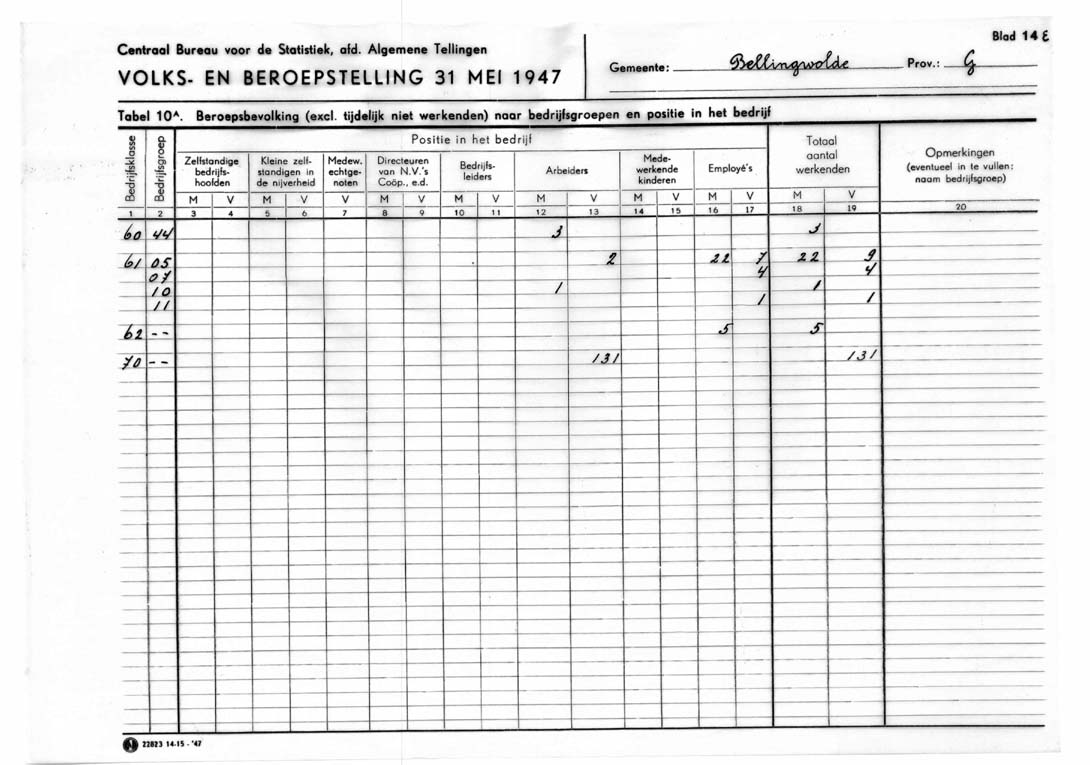 Blad 14 E
Centraal Bureau voor de Statistiek, afd. Algemene Tellingen
VOLKS- EN BEROEPSTELLING 31 MEI 1947
Gemeente: Bellingwolde Prov.: G
Tabel 10A. Beroepsbevolking (excl. tijdelijk niet werkenden) naar bedrijfsgroepen en positie in het bedrijf
Bedrijfsklasse
Bedrijfsgroep
Positie in het bedrijf
Zelfstandige bedrijfs-hoofden
Kleine zelf-standigen in de nijverheid
Medew. echtge-noten
Directeuren van N.V.'s Coöp., e.d.
Bedrijfs-leiders
Arbeiders
Mede-werkende kinderen
Employé's
Totaal aantal werkenden
Opmerkingen (eventueel in te vullen: naam bedrijfsgroep)
M V M V V M V M V M V M V M V M V
1 2 3 4 5 6 7 8 9 10 11 12 13 14 15 16 17 18 19 20
60 44 3 3
61 05 2 22 7 22 9
07 4 4
10 1 1
11 1 1
62 -- 5 5
70 -- 131 131
22823 14-15 - '47